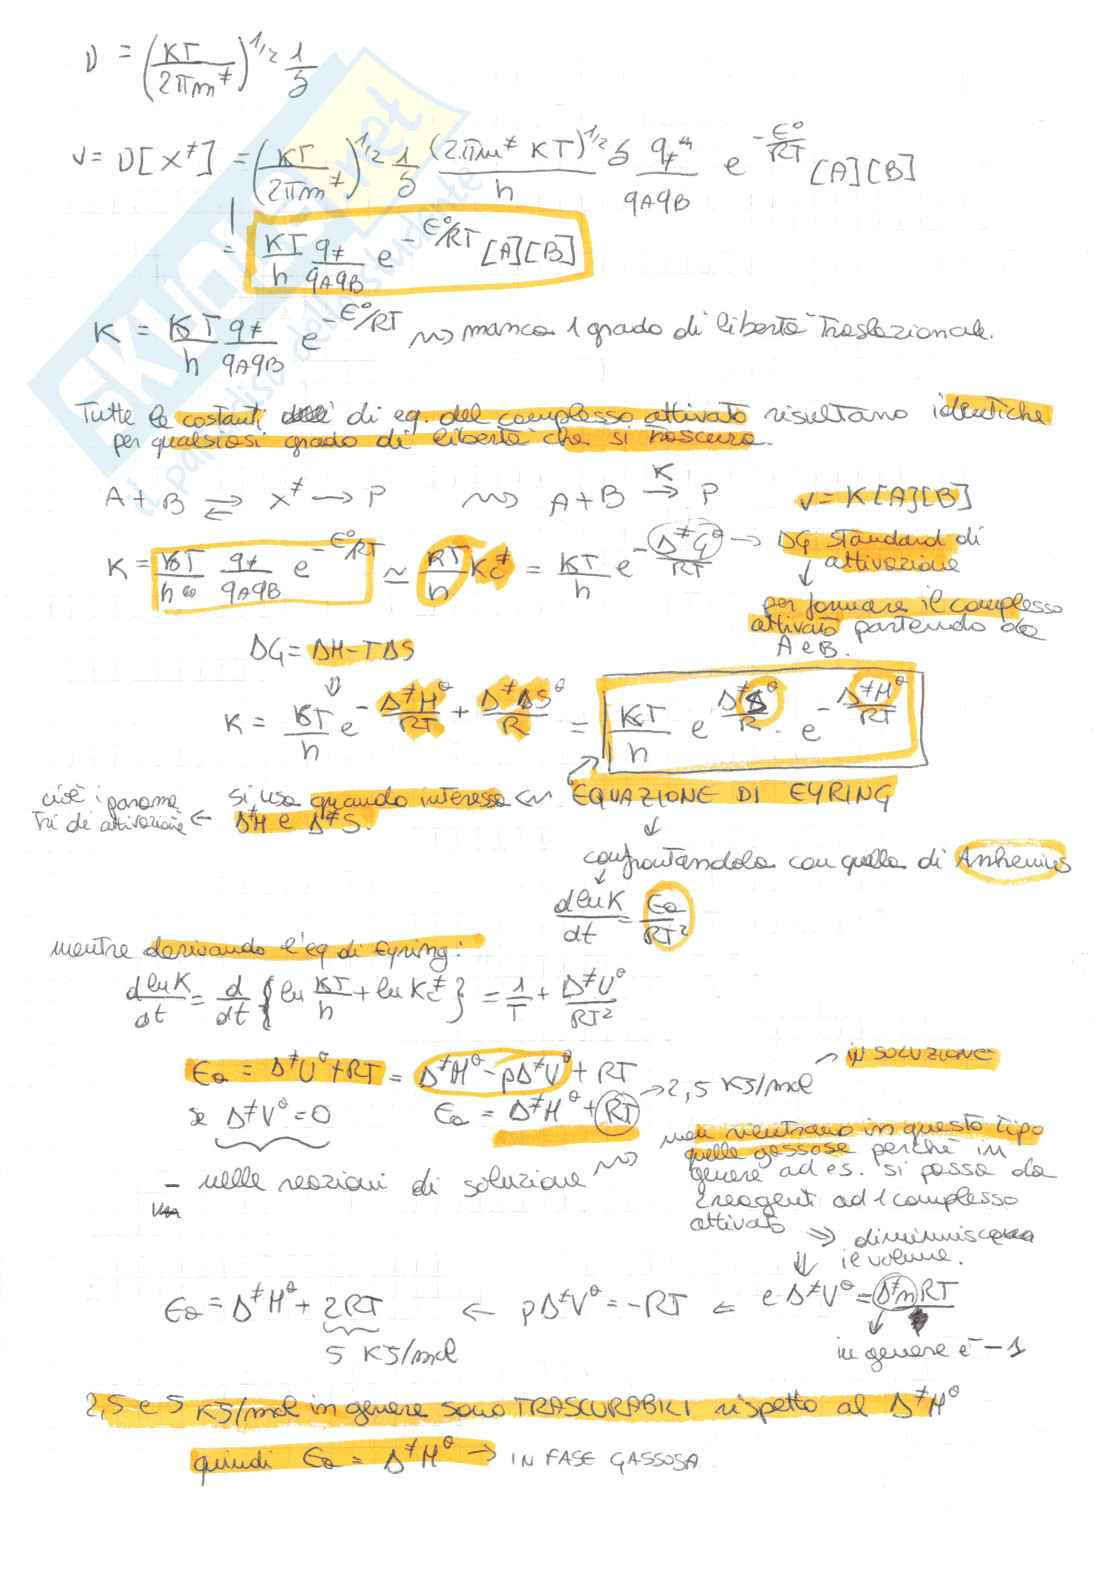 ν = (KT / 2πm≠)^1/2 1/δ
v = ν[X≠] = (KT / 2πm≠)^1/2 1/δ (2πm≠ KT)^1/2 / h δ q≠ / qAqB e^-ε°/RT [A][B]
= KT/h q≠/qAqB e^-ε°/RT [A][B]
K = KT/h q≠/qAqB e^-ε°/RT ⇝ manca 1 grado di libertà traslazionale.
Tutte le costanti di eq. del complesso attivato risultano identiche
per qualsiasi grado di libertà che si trascura.
A + B ⇌ X≠ → P ⇝ A + B →K P v = K[A][B]
K = KT/h q≠/qAqB e^-ε°/RT ≃ RT/h Kc≠ = KT/h e^-Δ≠G°/RT → DG standard di
attivazione
↓
per formare il complesso
attivato partendo da
A e B.
ΔG = ΔH - TΔS
⇓
K = KT/h e^-Δ≠H°/RT + Δ≠ΔS°/R = KT/h e^Δ≠S°/R · e^-Δ≠H°/RT
cioè i parame
tri di attivazione ← si usa quando interessa EQUAZIONE DI EYRING
Δ≠H e Δ≠S.
↓
confrontandola con quella di Arrhenius
↓
dlnK/dt = Ea/RT²
mentre derivando l'eq di Eyring:
dlnK/dt = d/dt {ln KT/h + ln Kc≠} = 1/T + Δ≠U°/RT²
Ea = Δ≠U° + RT = Δ≠H° - pΔ≠V° + RT IN SOLUZIONE
se Δ≠V° = 0 Ea = Δ≠H° + RT → 2,5 KJ/mol
- nelle reazioni di soluzione ⇝ non rientrano in questo tipo
quelle gassose perchè in
genere ad es. si passa da
2 reagenti ad 1 complesso
attivato ⇒ diminuisce
il volume.
⇓
Ea = Δ≠H° + 2RT ← pΔ≠V° = -RT ⇐ e Δ≠V° = Δ≠nRT
5 KJ/mol in genere è -1
2,5 e 5 KJ/mol in genere sono TRASCURABILI rispetto al Δ≠H°
quindi Ea = Δ≠H° → IN FASE GASSOSA
SKUOLA.net
il paradiso dello studente